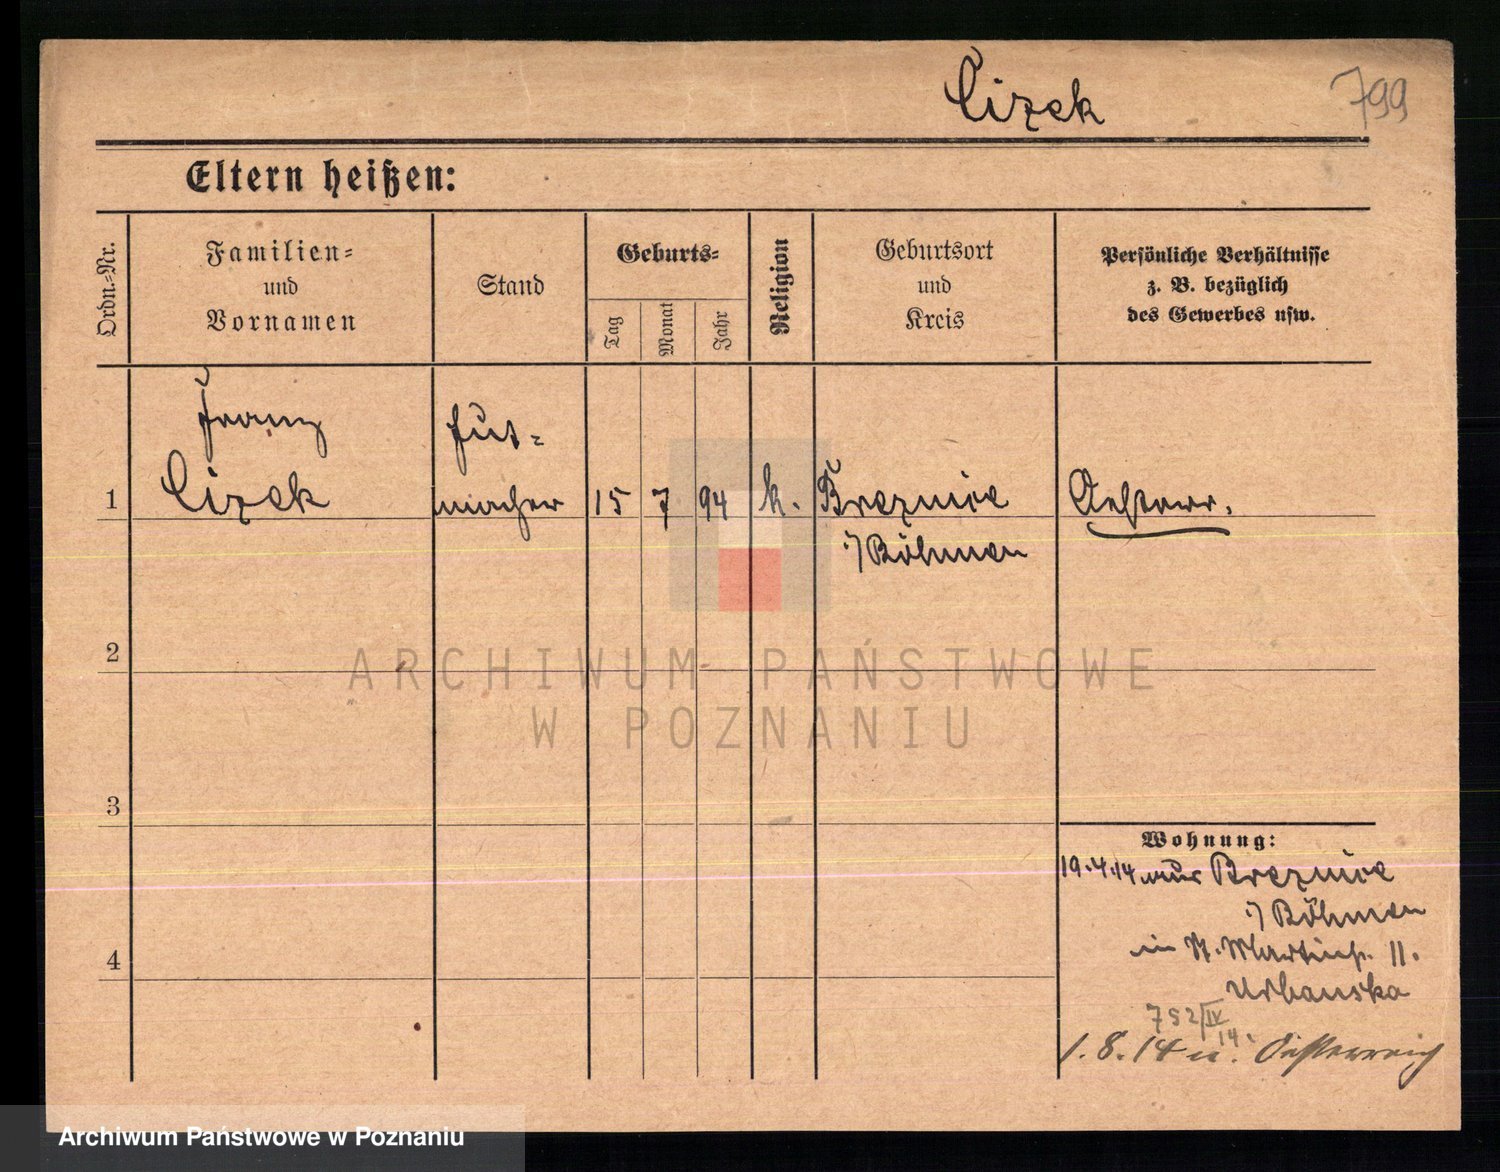 Cizek
799
Eltern heißen:
Ordn.-Nr.
Familien-
und
Vornamen
Stand
Geburts-
Tag
Monat
Jahr
Religion
Geburtsort
und
Kreis
Persönliche Verhältnisse
z. B. bezüglich
des Gewerbes usw.
Franz
Cizek
Hut-
macher
1
15
7
94
k.
Breznice
i/ Böhmen
Oesterr.
2
ARCHIWUM PAŃSTWOWE
W POZNANIU
3
4
Wohnung:
19.4.14 aus Breznice
i/ Böhmen
in St. Martinstr. 11.
Urbanska
752/IV
14.
1.8.14 n. Österreich
Archiwum Państwowe w Poznaniu